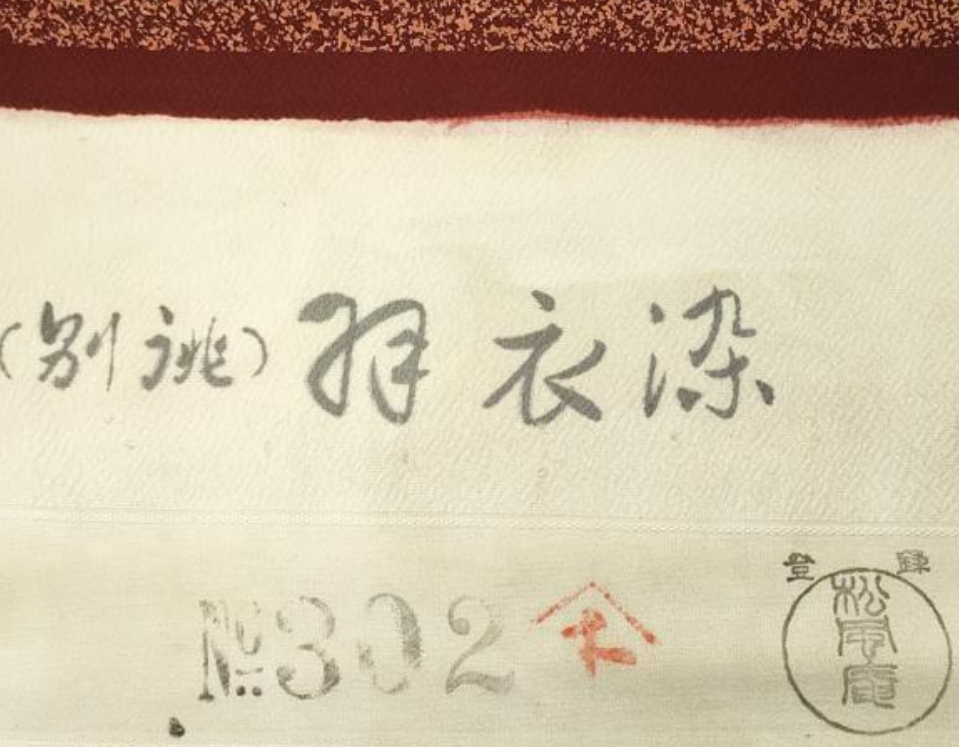 (別誂) 羽衣染
登録
№302
松風庵